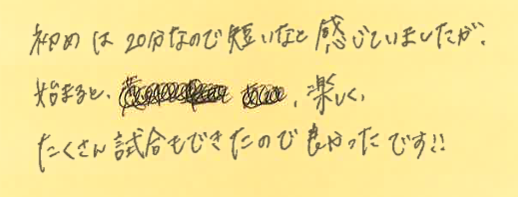 初めは20分なので短いなと感じていましたが、
始まると、、楽しく、
たくさん試合もできたので良かったです!!